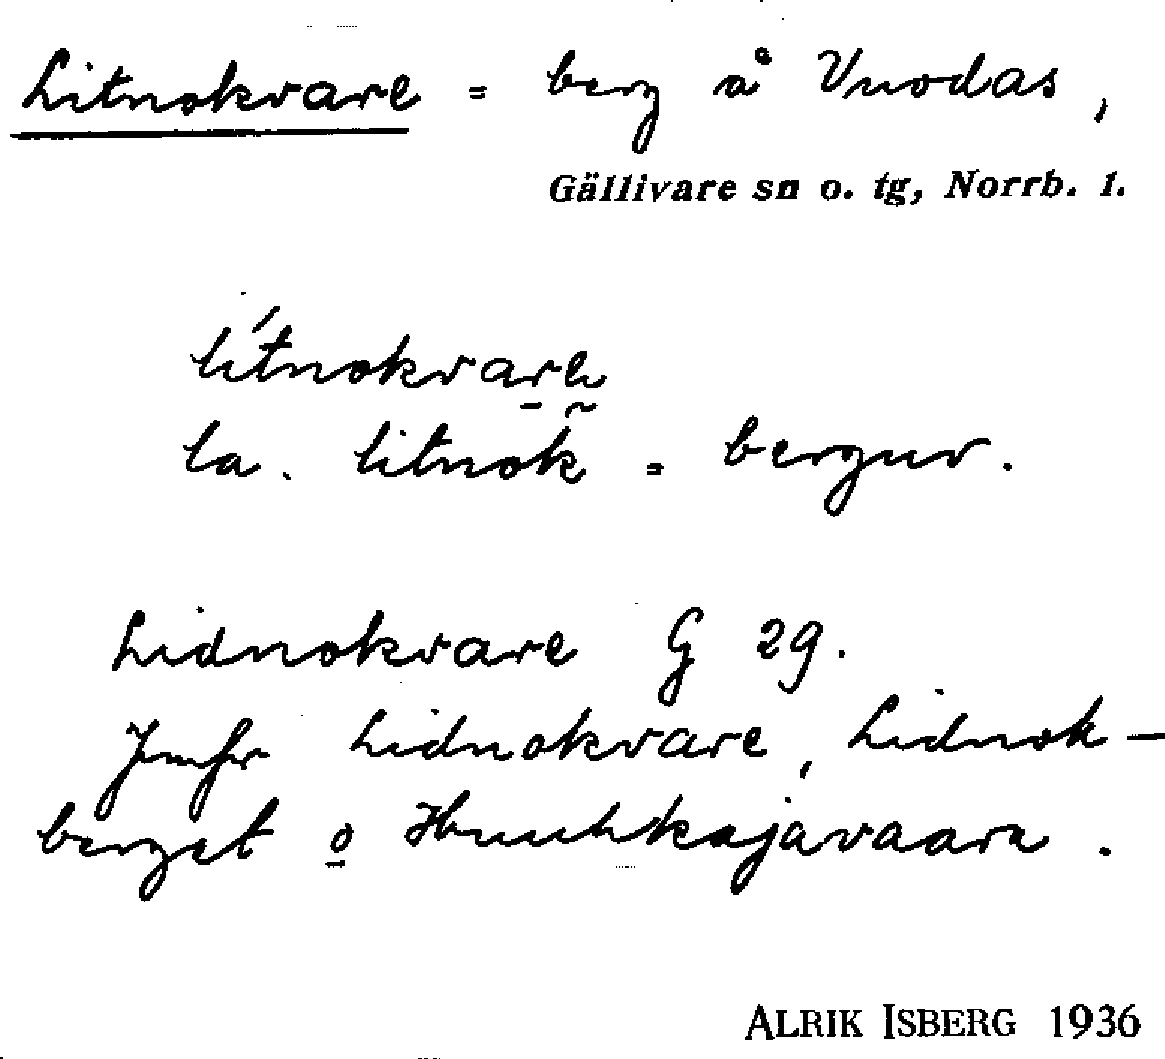 Litnokvare = berg å Vuodas,
Gällivare sn o. tg, Norrb. l.
lítnokvare
la. litnok = berguv.
Lidnokvare G 29.
Jmfr Lidnokvare, Lidnok-
berget o Huuhkajavaara.
ALRIK ISBERG 1936